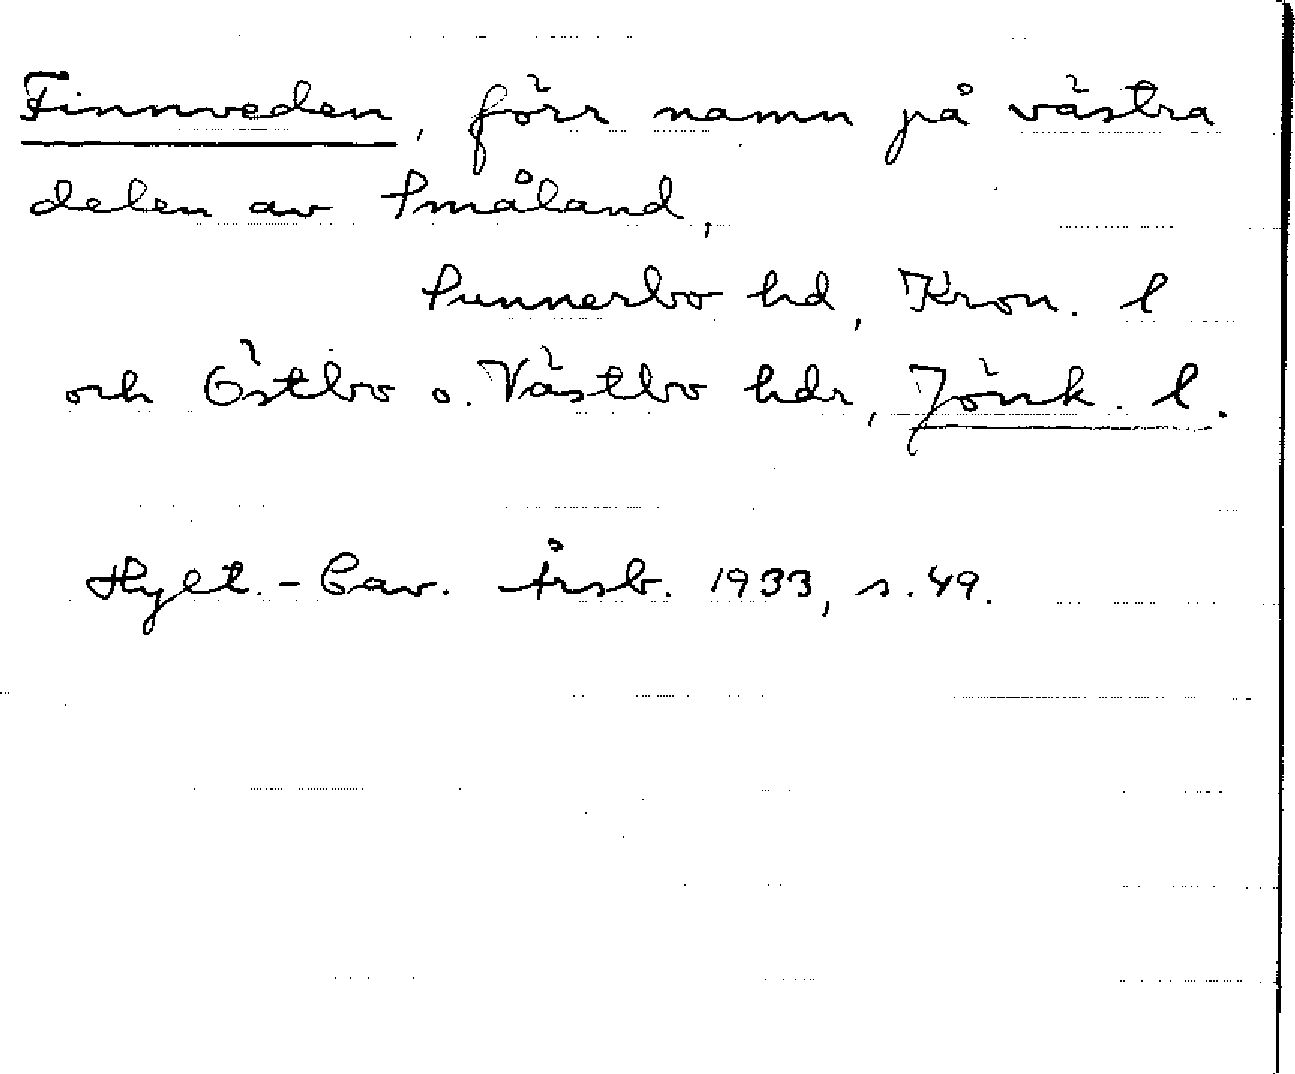 Finnveden, förr namn på västra
delen av Småland,
Sunnerbo hd, Kron. l
och Östbo o. Västbo hdr, Jönk. l.
Hylt.-Cav. Årsb. 1933, s. 49.